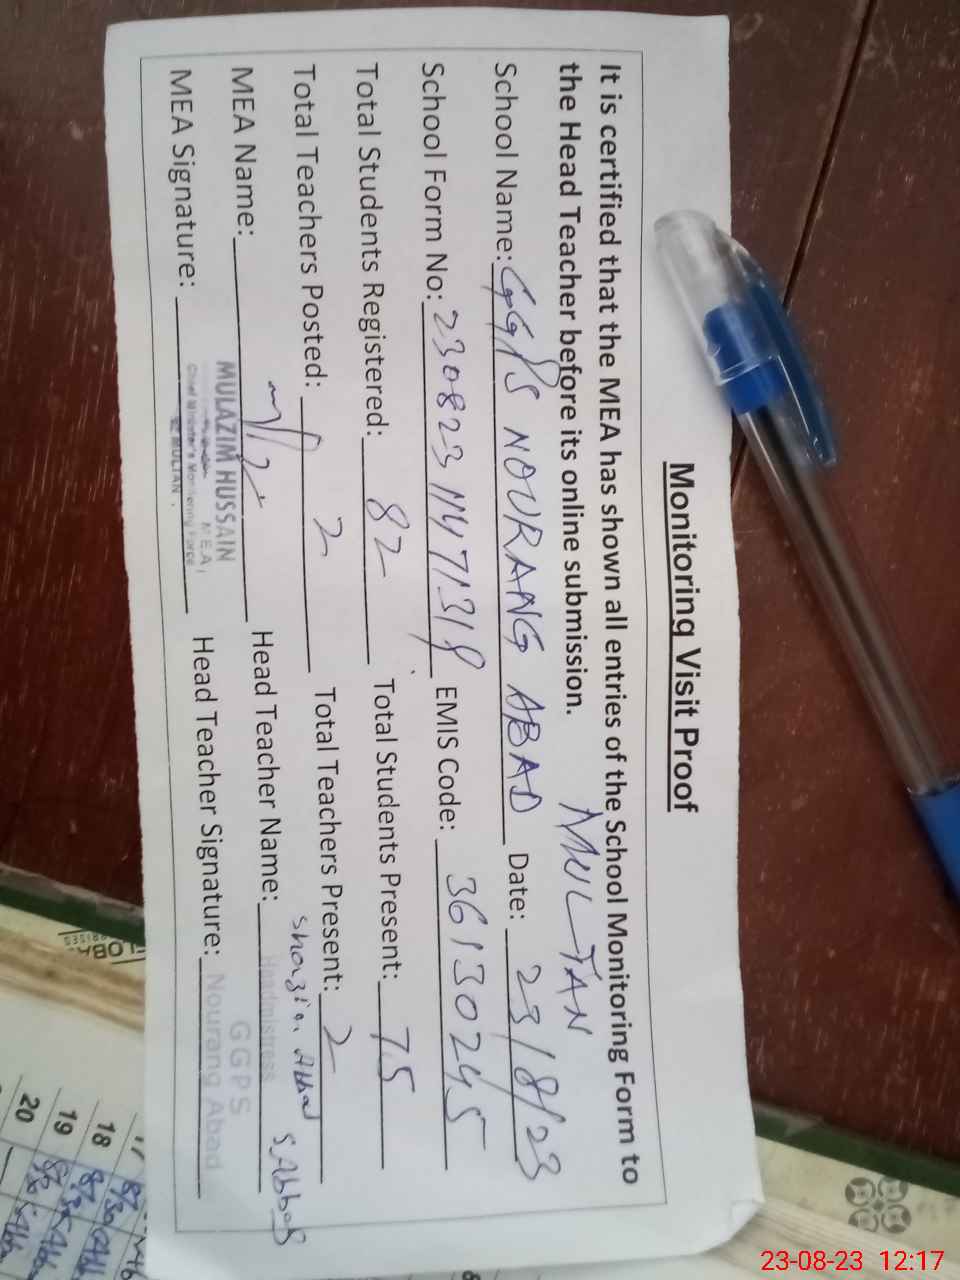 Monitoring Visit Proof
It is certified that the MEA has shown all entries of the School Monitoring Form to
the Head Teacher before its online submission.
MULTAN
School Name: GGPS NOURANG ABAD Date: 23/8/23
School Form No: EMIS Code: 36130245
Total Students Registered: 82 Total Students Present: 75
Total Teachers Posted: 2 Total Teachers Present: 2
MEA Name: Head Teacher Name: Shazia Abbas
S.Abbas
MULAZIM HUSSAIN
M.E.A
Chief Minister's Monitoring Force
MULTAN
MEA Signature: Head Teacher Signature:
Headmistress
GGPS
Nourang Abad
17
18
19
20
23-08-23 12:17